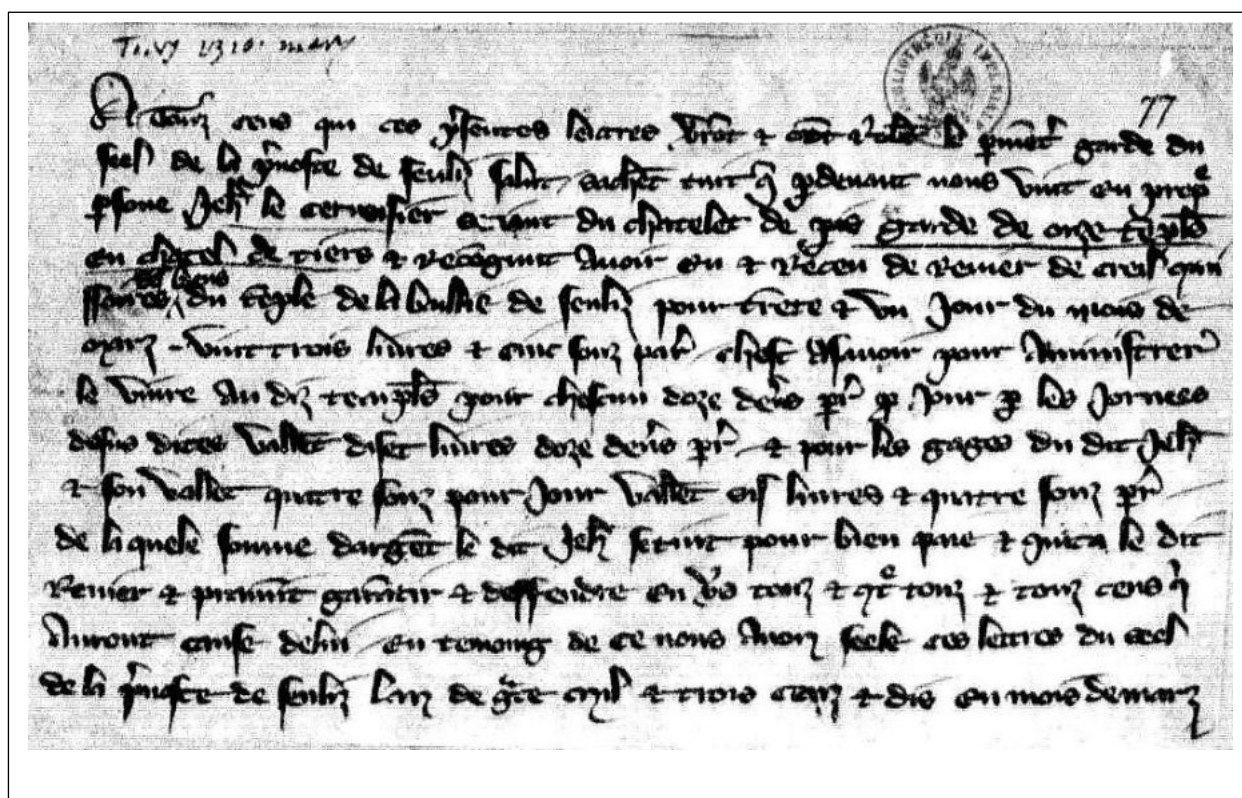 Tiers 1310. mars
77
A Touz ceus qui ces psentes lettres vrot & orrot le garde du
seel de la pvoste de senliz salut sachet tuit q pdevant nous vint en prop
psone Jeh le cervoisier serjant du chatelet de pis garde de onze templs
en chatel de tiers & recognut avoir eu & receu de renier de creil qui
des biens
du temple de la baillie de senliz pour trente & un jour du mois de
marz vint trois livres & cinc souz par chest asavoir pour aministrer
le vivre au diz templs pour chescun doze deners pr p jour p les jornees
desus dites vallet diset livres doze deners pr & pour les gages du dit Jeh
& son vallet quatre souz pour jour vallet sis livres & quatre souz pr
de la quele somme dargent le dit Jeh se tint pour bien paie & quita le dit
Renier & pramist garantir & deffendre en vs touz & qt touz & touz ceus q
auront cause de lui en temoing de ce nous avonz seele ces lettres du seel
de la pvoste de senliz lan de grce mil & trois cenz & dis en mois de marz